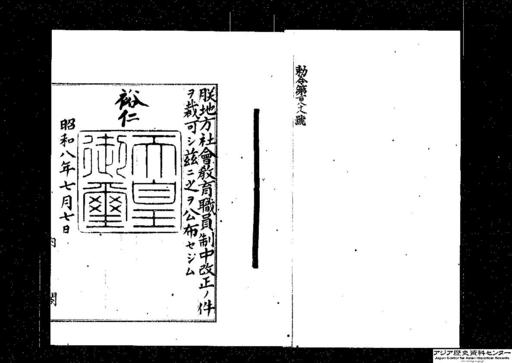 朕地方社會敎育職員制中改正ノ件
ヲ裁可シ茲ニ之ヲ公布セシム
裕仁
天皇
御璽
昭和八年七月七日
内閣
アジア歴史資料センター
Japan Center for Asian Historical Records